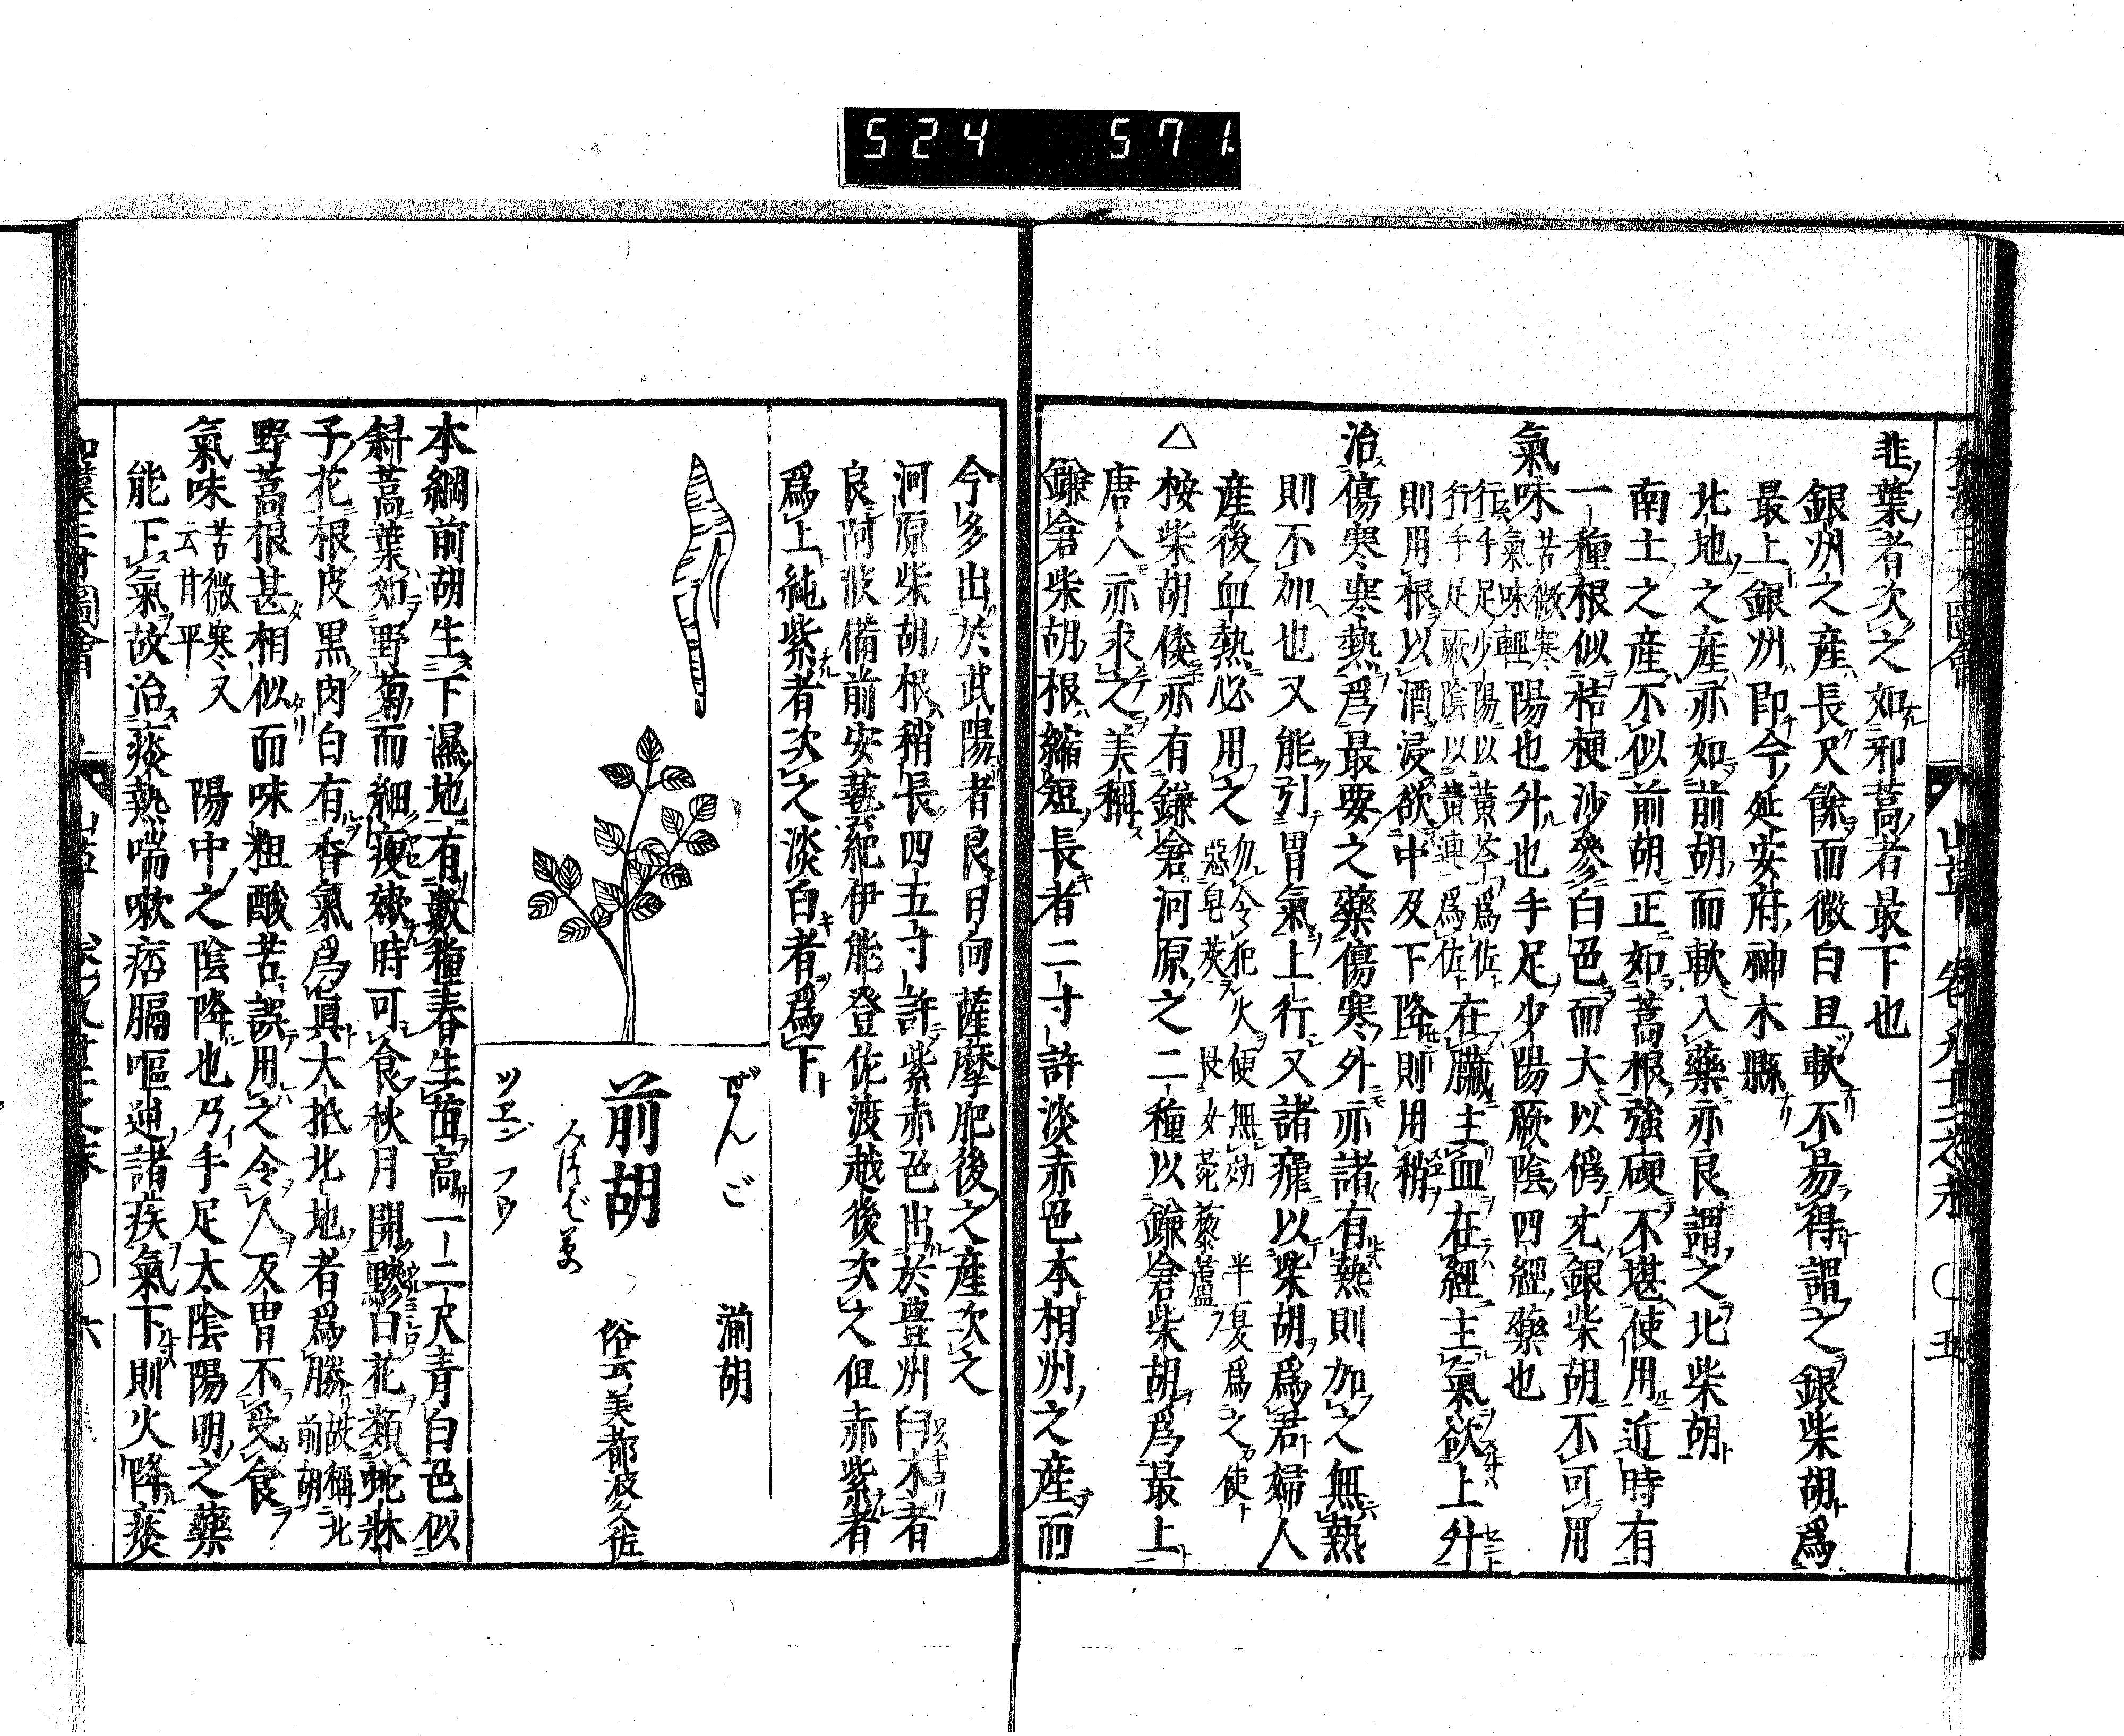 524 571.
韭葉者次之如邪蒿者最下也
銀州之產長尺餘而微白且軟不易得謂之銀柴胡爲
最上銀州即今延安府神木縣
北地之產亦如前胡而軟入藥亦良謂之北柴胡
南土之產不似前胡正如蒿根強硬不堪使用近時有
一種根似桔梗沙參白色而大以僞充銀柴胡不可用
氣味苦微寒氣味輕陽也升也手足少陽厥陰四經藥也
行手足少陽以黃芩爲佐
行手足厥陰以黃連爲佐
在臟主血在經主氣欲上升
則用根以酒浸欲中及下降則用梢
治傷寒寒熱爲最要之藥傷寒外亦諸有熱則加之無熱
則不加也又能引胃氣上行又諸瘧以柴胡爲君婦人
產後血熱必用之
勿令犯火便無効 半夏爲之使
惡皂莢 畏女菀藜蘆
△桉柴胡倭亦有鎌倉河原之二種以鎌倉柴胡爲最上
唐人亦求之美稱
鎌倉柴胡根縮短長者二寸許淡赤色本相州之產而
今多出於武陽者良日向薩摩肥後之產次之
河原柴胡根稍長四五寸許紫赤色出於豊州臼木者
良阿波備前安藝紀伊能登佐渡越後次之但赤紫者
爲上純紫者次之淡白者爲下
ぜんご
湔胡
前胡
俗云美都波久佐
ツヱンフウ
本綱前胡生下濕地有數種春生苗高一二尺青白色似
斜蒿葉如野菊而細瘦嫩時可食秋月開黲白花類蛇牀
子花根皮黒肉白有香氣爲眞大抵北地者爲勝故稱北前胡
野蒿根甚相似而味粗酸苦誤用之令人反胃不受食
氣味苦微寒又云甘平 陽中之陰降也乃手足太陰陽明之藥
能下氣故治痰熱喘嗽痞膈嘔逆諸疾氣下則火降痰